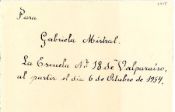 Para
Gabriela Mistral.
La Escuela Nº 18 de Valparaíso,
al partir el día 6 de Octubre de 1954.